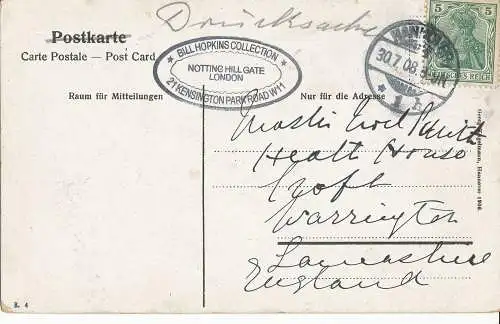 Postkarte
Carte Postale — Post Card
Drucksache
★ BILL HOPKINS COLLECTION ★
NOTTING HILL GATE
LONDON
21 KENSINGTON PARK ROAD W11
30.7.08.
★ 1
5 5
REICH
Raum für Mitteilungen
Nur für die Adresse
Master Noel
Healt House
Croft
Warrington
Lancashire
England
Hannover 1906.
R. 4